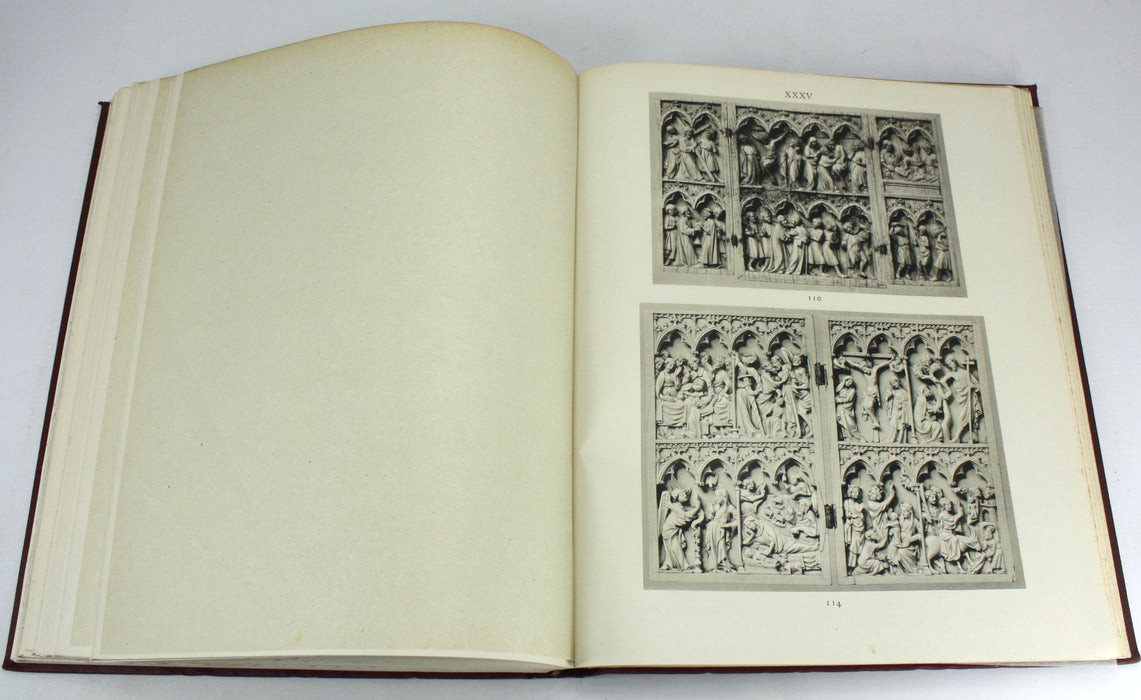 XXXV
110
114